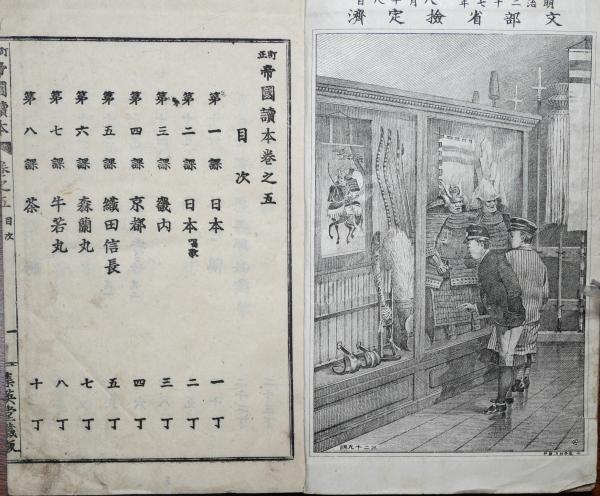 明治二十七年
文部省檢定濟
訂正 帝國讀本卷之五
目次
第一課 日本 一丁
第二課 日本 唱歌 二丁
第三課 畿內 三丁
第四課 京都 四丁
第五課 織田信長 五丁
第六課 森蘭丸 七丁
第七課 牛若丸 八丁
第八課 茶 十丁
帝國讀本 卷之五 目次
一
集英堂藏版